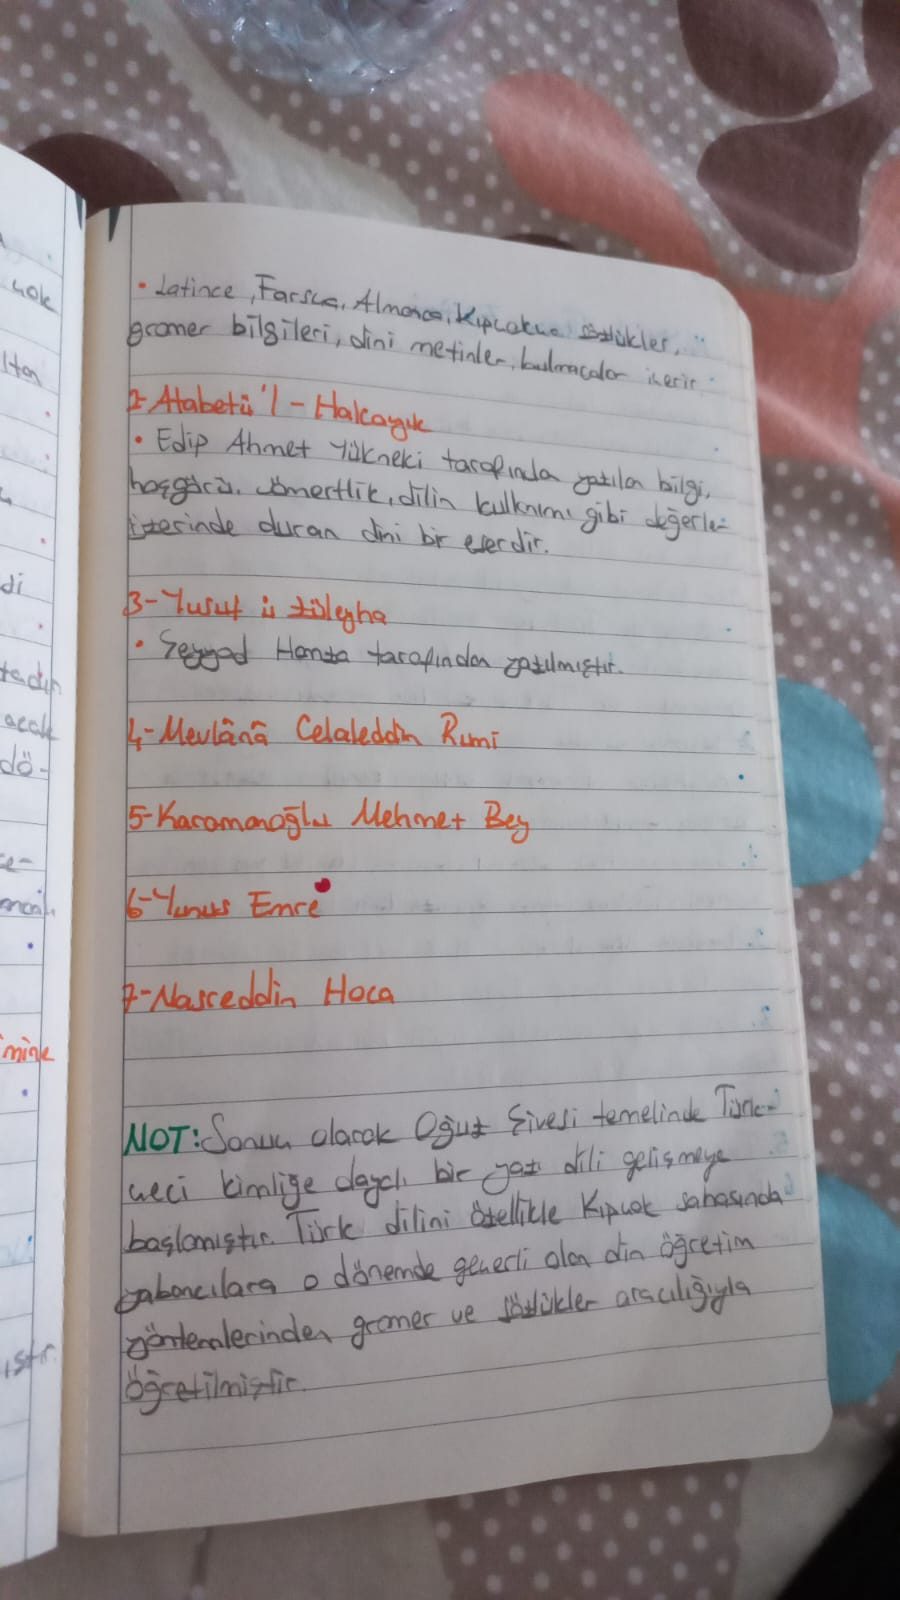 • Latince, Farsça, Almanca, Kıpçakca sözlükler,
gramer bilgileri, dini metinler, bulmacalar içerir.
2-Atabetü'l - Hakayık
• Edip Ahmet Yükneki tarafında yazılan bilgi,
hoşgörü, cömertlik, dilin kullnımı gibi değerler
üzerinde duran dini bir eserdir.
3-Yusuf ü Züleyha
• Seyyad Hamza tarafından yazılmıştır.
4-Mevlânâ Celaleddin Rumi
5-Karamanoğlu Mehmet Bey
6-Yunus Emre
7-Nasreddin Hoca
NOT: Sonuç olarak Oğuz Şivesi temelinde Türk-
çeci kimliğe dayalı bir yazı dili gelişmeye
başlamıştır. Türk dilini özellikle Kıpçak sahasında
yabancılara o dönemde geçerli olan din öğretim
yöntemlerinden gramer ve sözlükler aracılığıyla
öğretilmiştir.